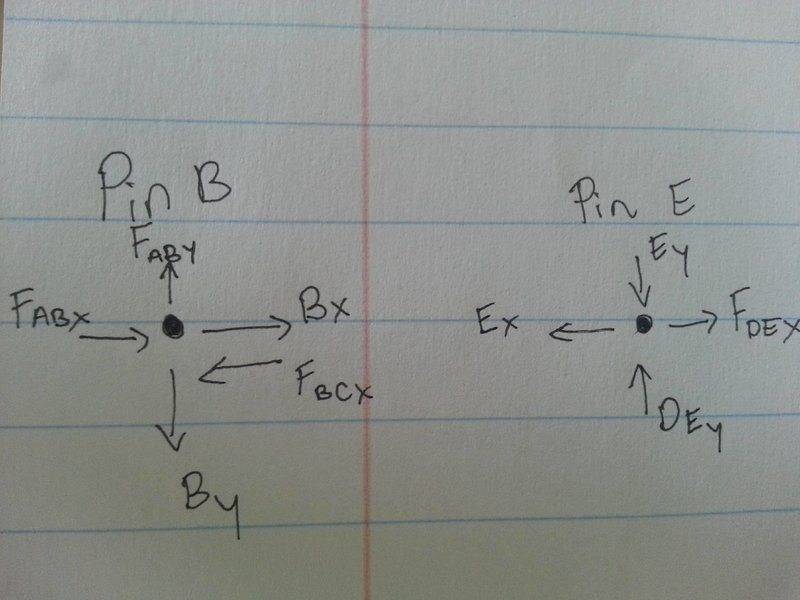 Pin B
FABY
FABX
BX
FBCX
By
Pin E
EY
EX
FDEX
DEy